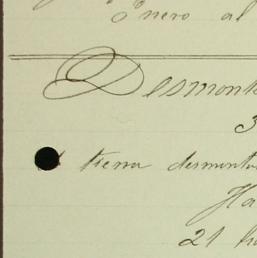 Enero al
Desmont
3
tierra desmonta
Ha
21 h